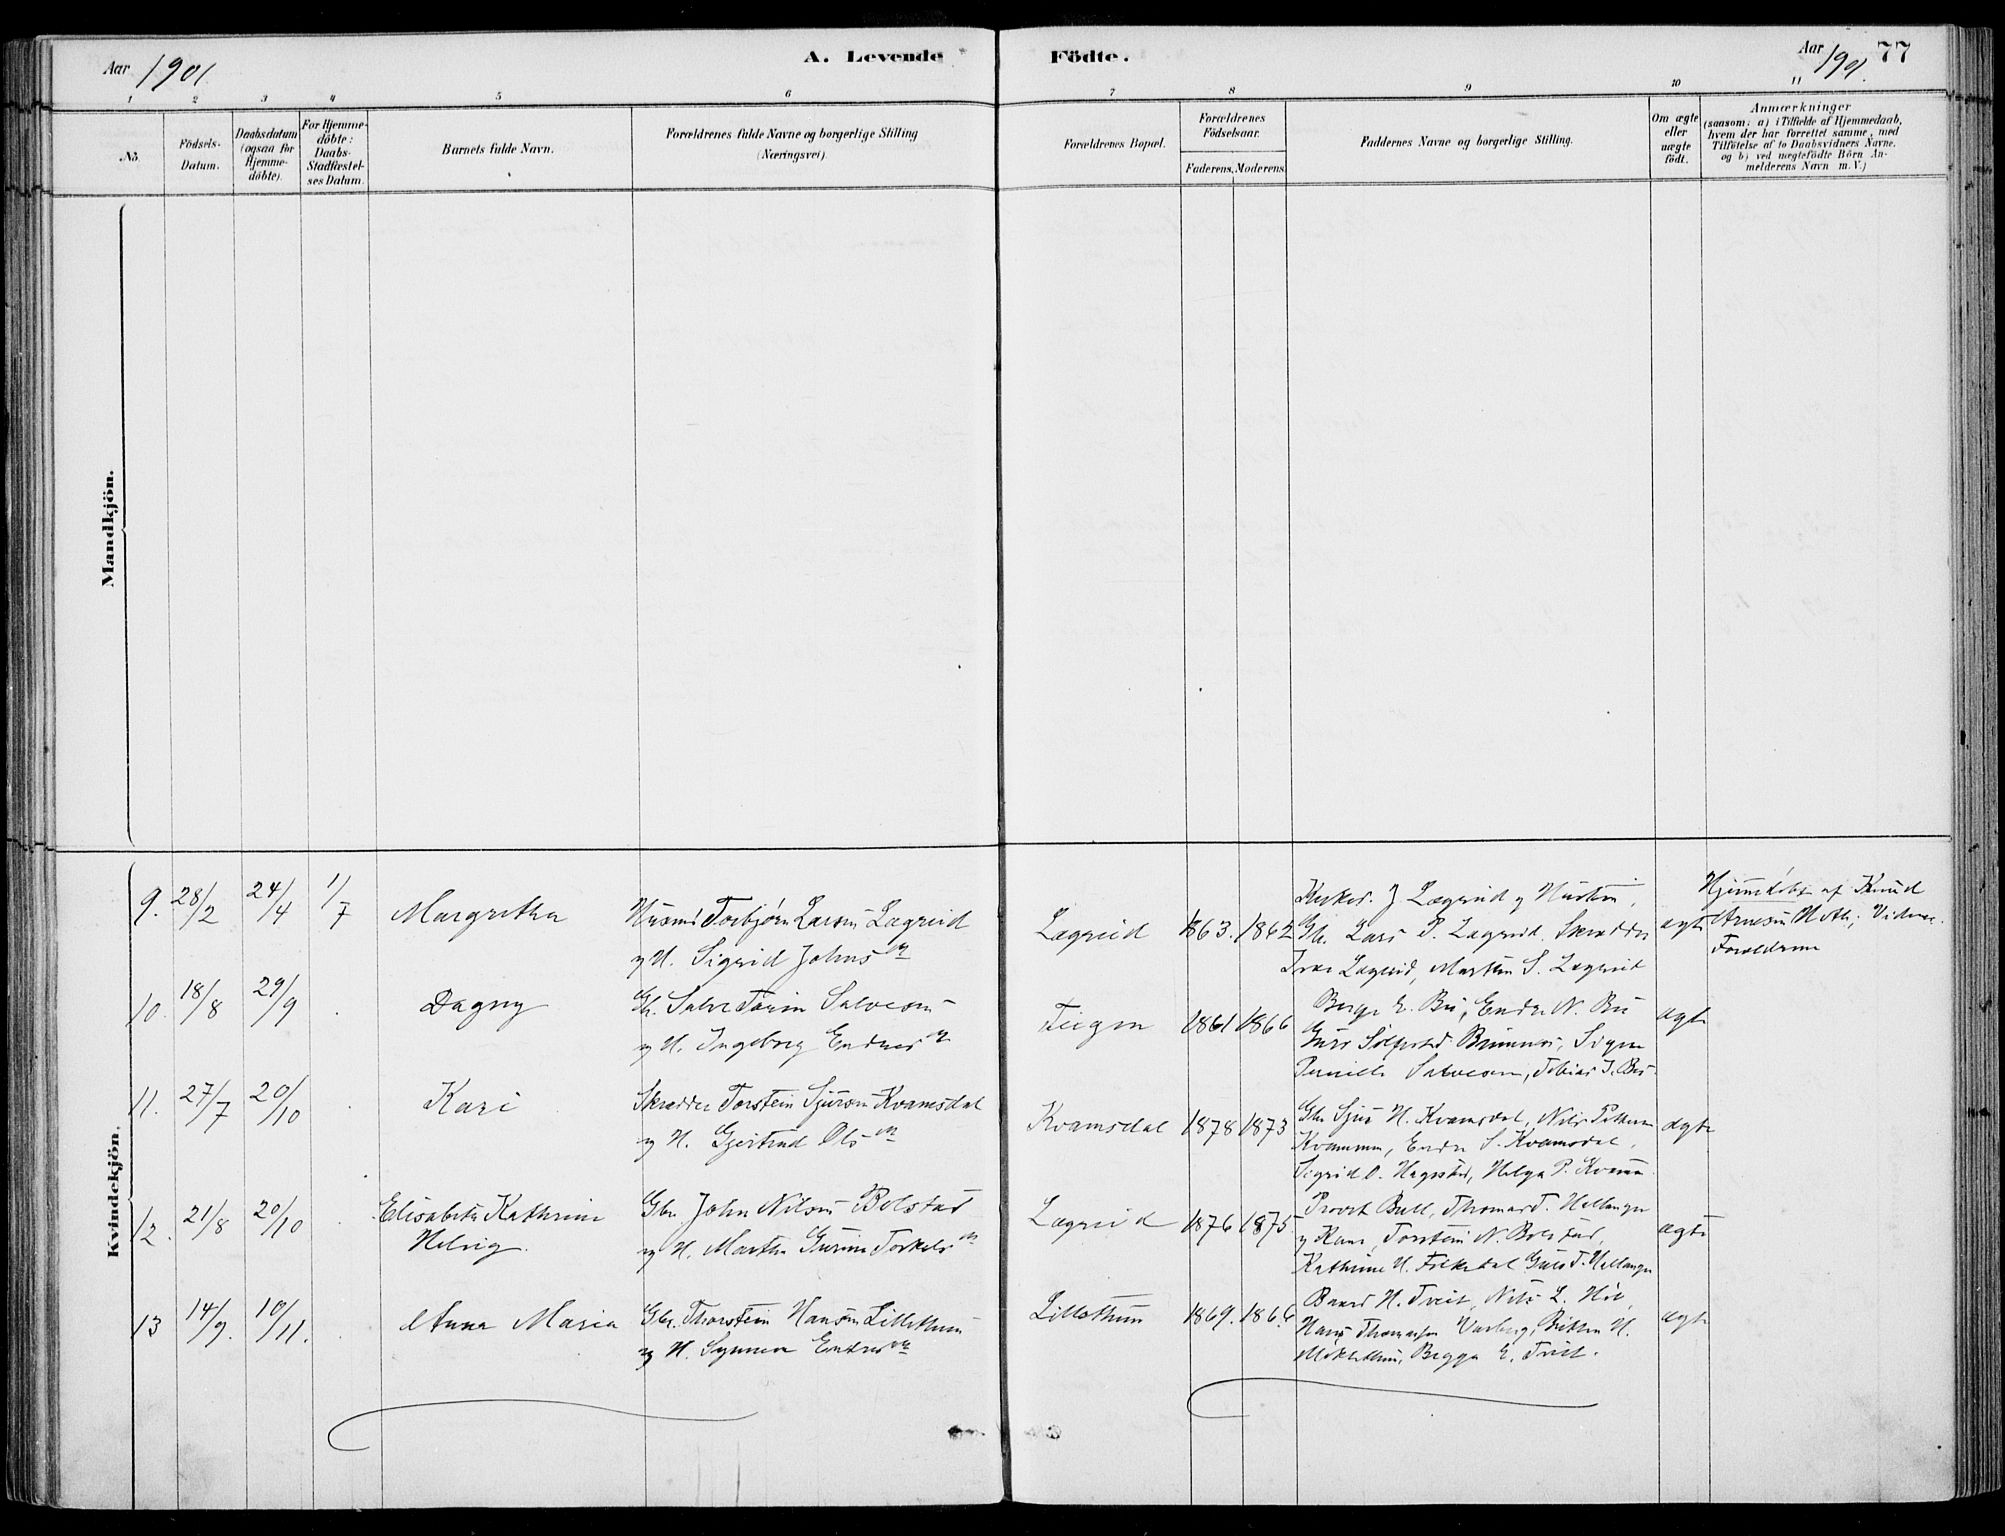 Aar 1901
A. Levende Födte.
Aar 1901. 77
1 2 3 4 5 6 7 8 9 10 11
No.
Födsels-Datum.
Daabsdatum (ogsaa for Hjemme-döbte).
For Hjemme-döbte: Daabs-Stadfæstel-ses Datum.
Barnets fulde Navn.
Forældrenes fulde Navne og borgerlige Stilling (Næringsvei).
Forældrenes Bopæl.
Forældrenes Födselsaar.
Faderens. Moderens.
Faddernes Navne og borgerlige Stilling.
Om ægte eller uægte födt.
Anmærkninger
(saasom: a) i Tilfælde af Hjemmedaab,
hvem der har forrettet samme, med
Tilföielse af to Daabsvidners Navne.
og b) ved uægtefödte Börn An-
melderens Navn m. V.)
Mandkjön.
Kvindekjön.
9. 28/2 24/4 1/7 Margretha Husmd Torbjørn Larsen Lægreid
og H. Sigrid Johnsdr
Lægreid 1863. 1862 J Lægreid og Hustru,
Gbr. Lars P. Lægreid, Skrædder
Lægreid, S. Lægreid
ægte
Hjemmedøbt af Knud
Arnesen Vidner
Forældrene
10. 18/8 29/9 Dagny Salvesen
og H. Ingeborg Endresdr
Teigen 1861 1866 E. Bu, Endre N. Bu
Brimnes, Signe
Pernille Salvesen, Tobias J. Bu.
ægte
11. 27/7 20/10 Kari Skrædder Torstein Sjursen Kvamsdal
og H. Gjertrud Olsdr
Kvamsdal 1878 1873 Gbr Sjur H. Kvamsdal, Nils
Kvammen, Endre S. Kvamsdal,
Sigrid O. Helga P.
ægte
12. 21/8 20/10 Elisabeta Kathrine
Helvig.
Gbr. John Nilsen Bolstad
og H. Martha Gurine Torkelsdr
Lægreid 1876 1875 Provst Bull, Thomas T. Hellanger
og Kone, Torstein N. Bolstad,
Kathrine H. Folkedal T. Hellanger
ægte
13 14/9. 10/11. Anna Maria Gbr. Thorstein Hansen Lillethun
og H. Synneva Endresdr
Lillethun 1869. 1866 Baard H. Tveit, Nils L. Hol,
Hans Thomassen Varberg, H.
E. Tveit.
ægte